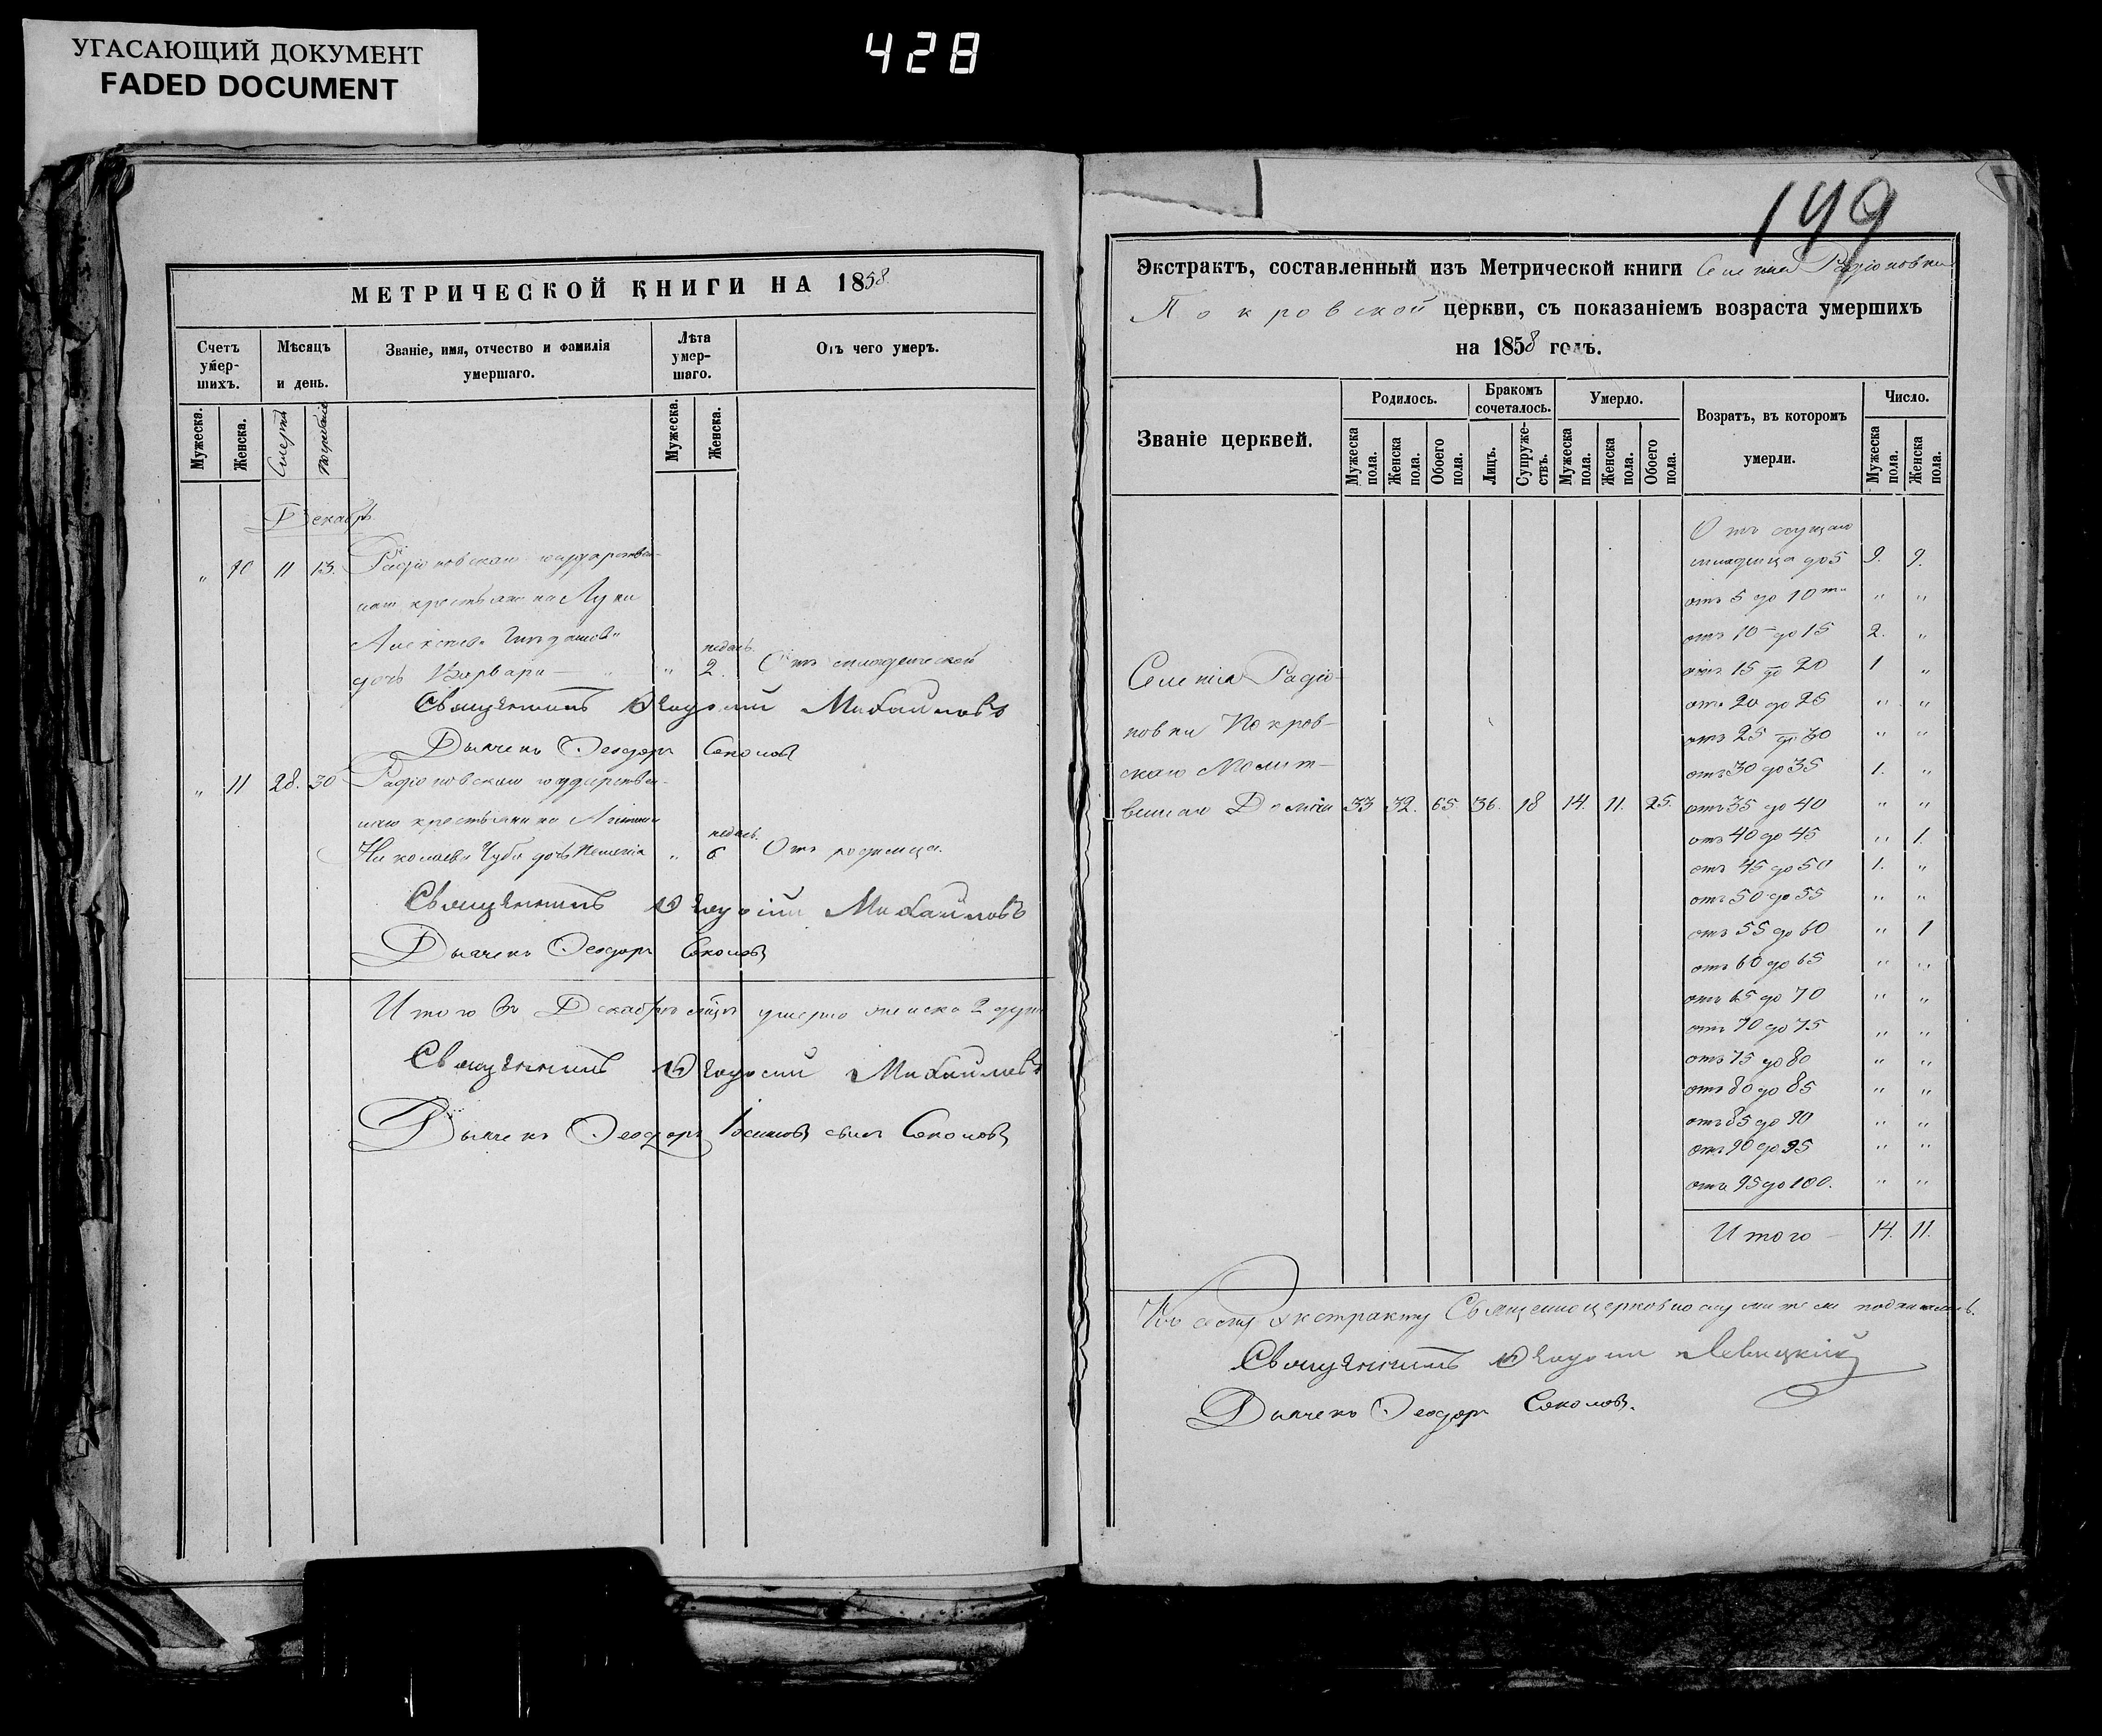 УГАСАЮЩИЙ ДОКУМЕНТ
FADED DOCUMENT
428
МЕТРИЧЕСКОЙ КНИГИ НА 1858
Счетъ умер-шихъ.
Мѣсяцъ и день.
Званіе, имя, отчество и фамилія умершаго.
Лѣта умер-шаго.
Отъ чего умеръ.
Мужеска.
Женска.
Смерти
Погребенія
Мужеска.
Женска.
Декабрь
" 10 11 13. Радіоновскаго государствен-
наго крестьянина Луки
Алексеева
дочь Варвара — " недѣль 2. Отъ младенческой
Священникъ Михаиловъ
Дьячекъ Ѳеодоръ Соколовъ
" 11 28. 30 Радіоновскаго государствен-
наго крестьянина
Николаева Чуба дочь " недѣль 6 Отъ родимца.
Священникъ Михаиловъ
Дьячекъ Ѳеодоръ Соколовъ
Итого въ Декабрѣ мцѣ умерло женска 2 души
Священникъ Михаиловъ
Дьячекъ Ѳеодоръ сынъ Соколовъ
149
Экстрактъ, составленный изъ Метрической книги Селенія Радіоновки
Покровской церкви, съ показаніемъ возраста умершихъ
на 1858 годъ.
Званіе церквей.
Родилось.
Бракомъ сочеталось.
Умерло.
Возратъ, въ которомъ умерли.
Число.
Мужеска пола.
Женска пола.
Обоего пола.
Лицъ.
Супруже-ствъ.
Мужеска пола.
Женска пола.
Обоего пола.
Мужеска пола.
Женска пола.
Отъ сущаго
младенца до 5 9. 9.
отъ 5 до 10ти " "
отъ 10 — до 15 2. "
отъ 15 до 20 1 "
отъ 20 до 25 " "
отъ 25 до 30 " "
отъ 30 до 35 1. "
Селенія Радіо-
новки Покров-
скаго Молит-
веннаго Дома 33 32. 65 36. 18 14. 11. 25. отъ 35 до 40 " "
отъ 40 до 45 " 1.
отъ 45 до 50 1. "
отъ 50 до 55 " "
отъ 55 до 60 " 1
отъ 60 до 65 " "
отъ 65 до 70 " "
отъ 70 до 75 " "
отъ 75 до 80 " "
отъ 80 до 85 " "
отъ 85 до 90 " "
отъ 90 до 95 " "
отъ 95 до 100. " "
Итого — 14. 11.
Къ сему экстракту Священноцерковнослужители подписались.
Священникъ Левицкій
Дьячекъ Ѳеодоръ Соколовъ.